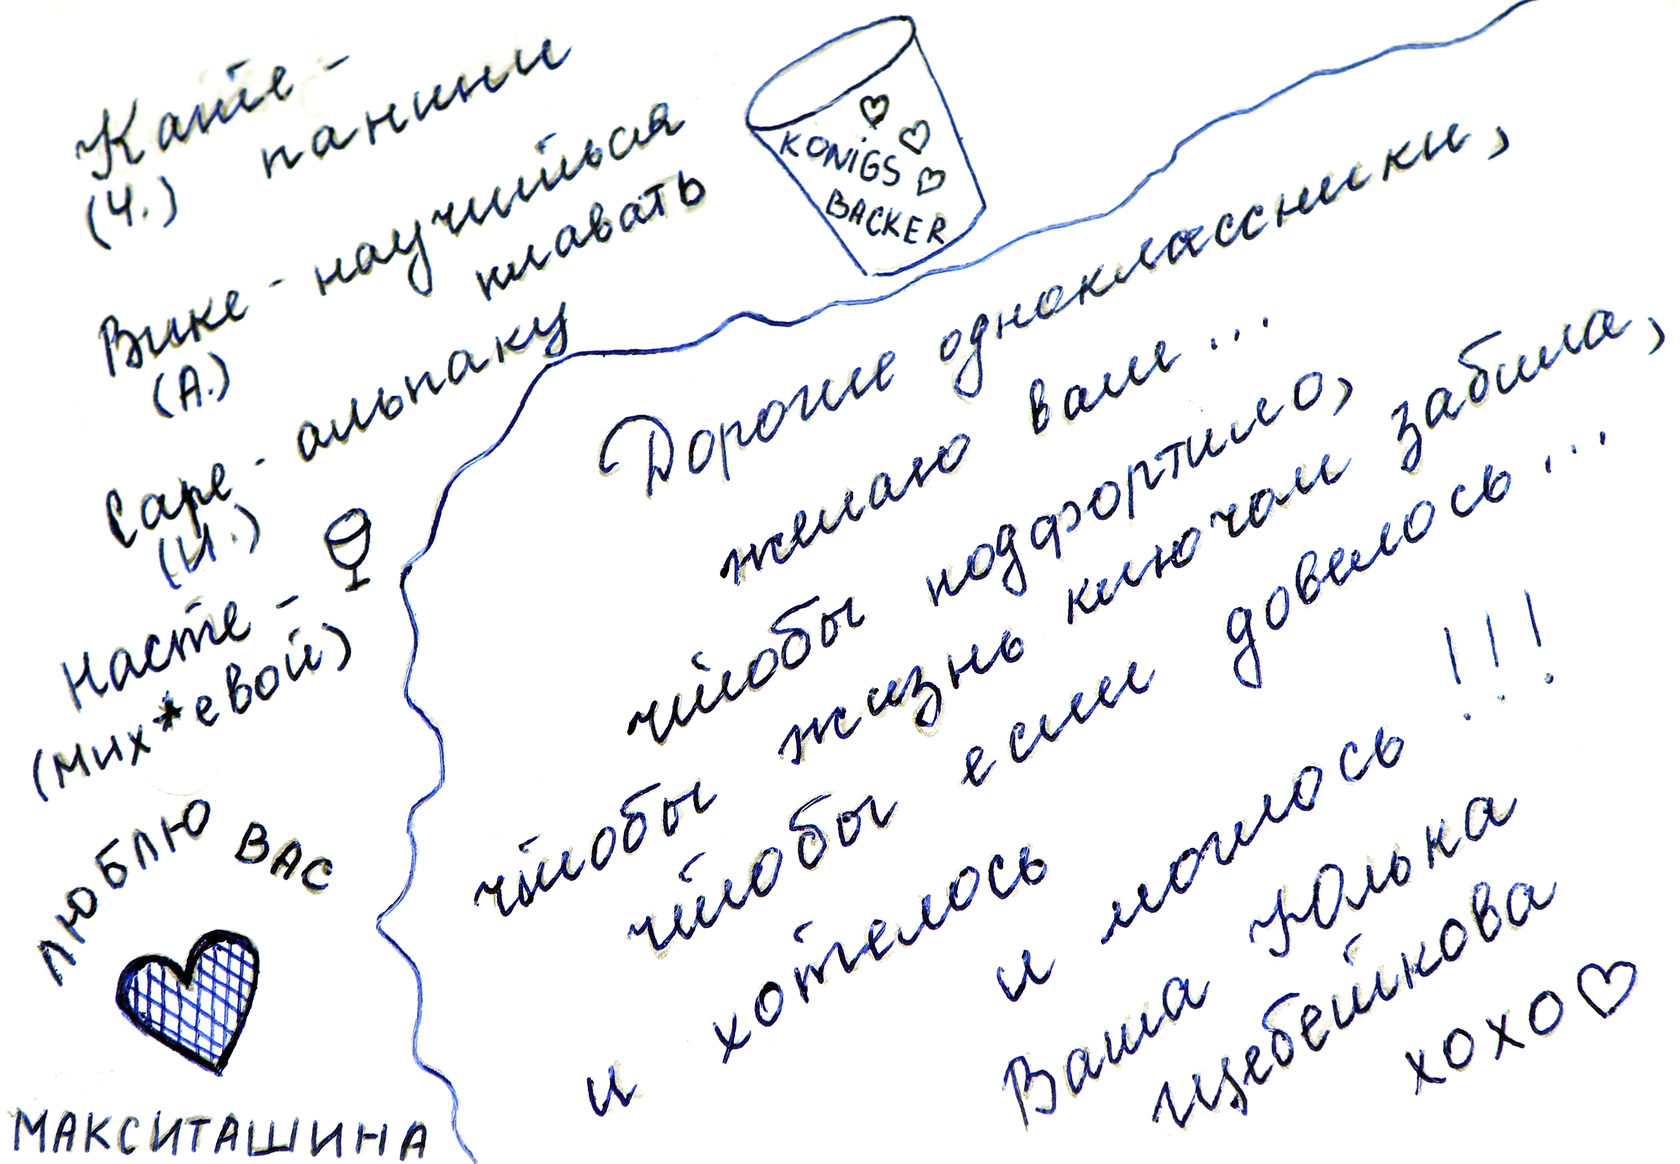 Кате -
(Ч.) панини
Вике - научиться
(А.) плавать
Саре - альпаку
(И.)
Насте -
(мих*евой)
ЛЮБЛЮ ВАС
МАКСИТАШИНА
KONiGS
BACKER
Дорогие одноклассники,
желаю вам...
чтобы подфортило,
чтобы жизнь ключом забила,
чтобы если довелось...
и хотелось
и моглось !!!
Ваша Юлька
Щебеткова
хохо